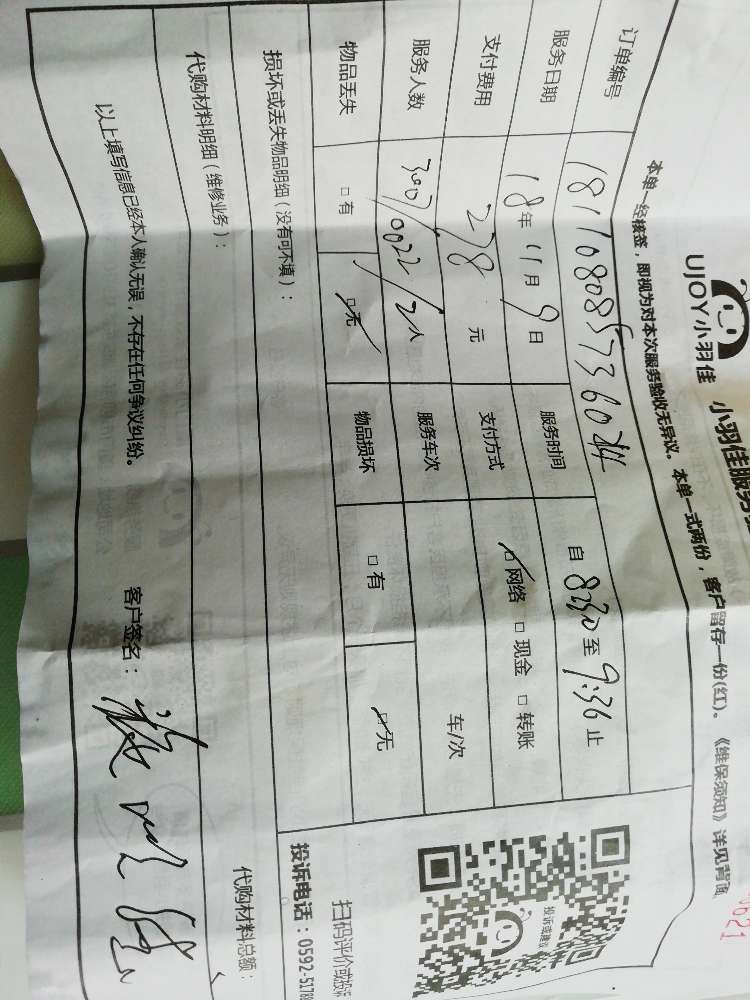 UJOY小羽佳 小羽佳服务
本单一经核签，即视为对本次服务验收无异议。本单一式两份，客户留存一份(红)。《维保须知》详见背面
0621
订单编号
服务日期 18年 11月 9日 服务时间 自 8:30 至 9:36 止
支付费用 278 元 支付方式 ☑网络 □现金 □转账
服务人数 3007/0022/2人 服务车次 车/次
物品丢失 □有 ☑无 物品损坏 □有 ☑无
损坏或丢失物品明细（没有可不填）：
代购材料明细（维修业务）： 代购材料总额：
以上填写信息已经本人确认无误，不存在任何争议纠纷。 客户签名：
投诉或建议
扫码评价或投诉
投诉电话：0592-5178